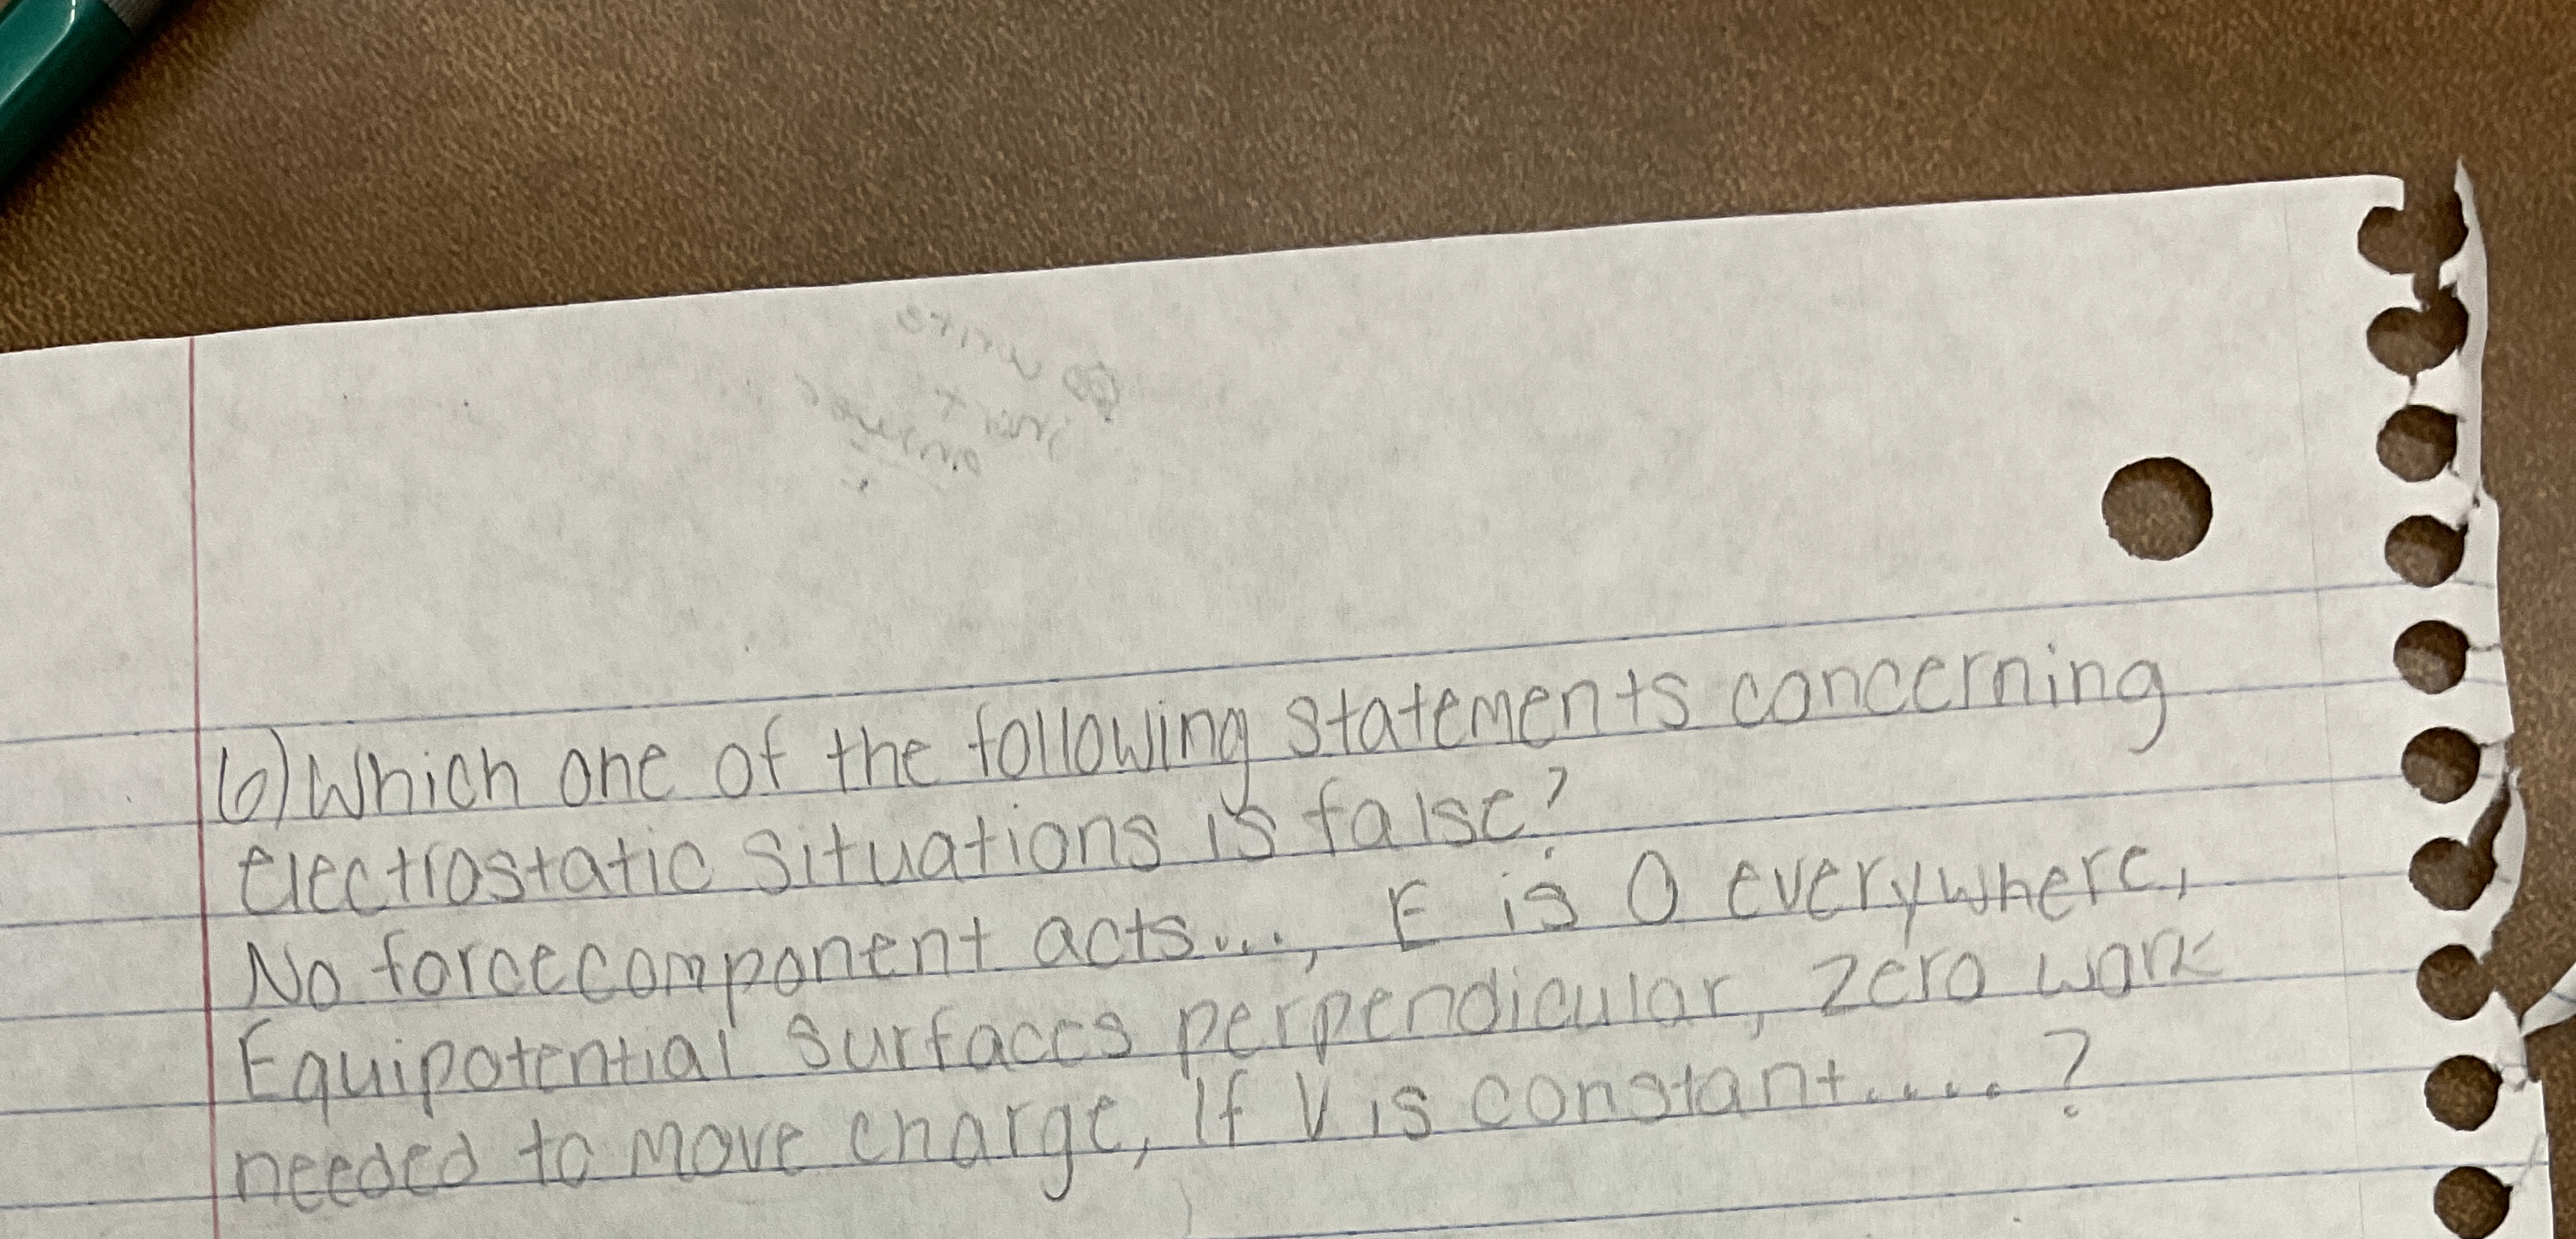 write
just
answer
6) Which one of the following statements concerning
electrostatic situations is false?
No force component acts..., E is 0 everywhere,
Equipotential surfaces perpendicular, zero work
needed to move charge, If V is constant.....?